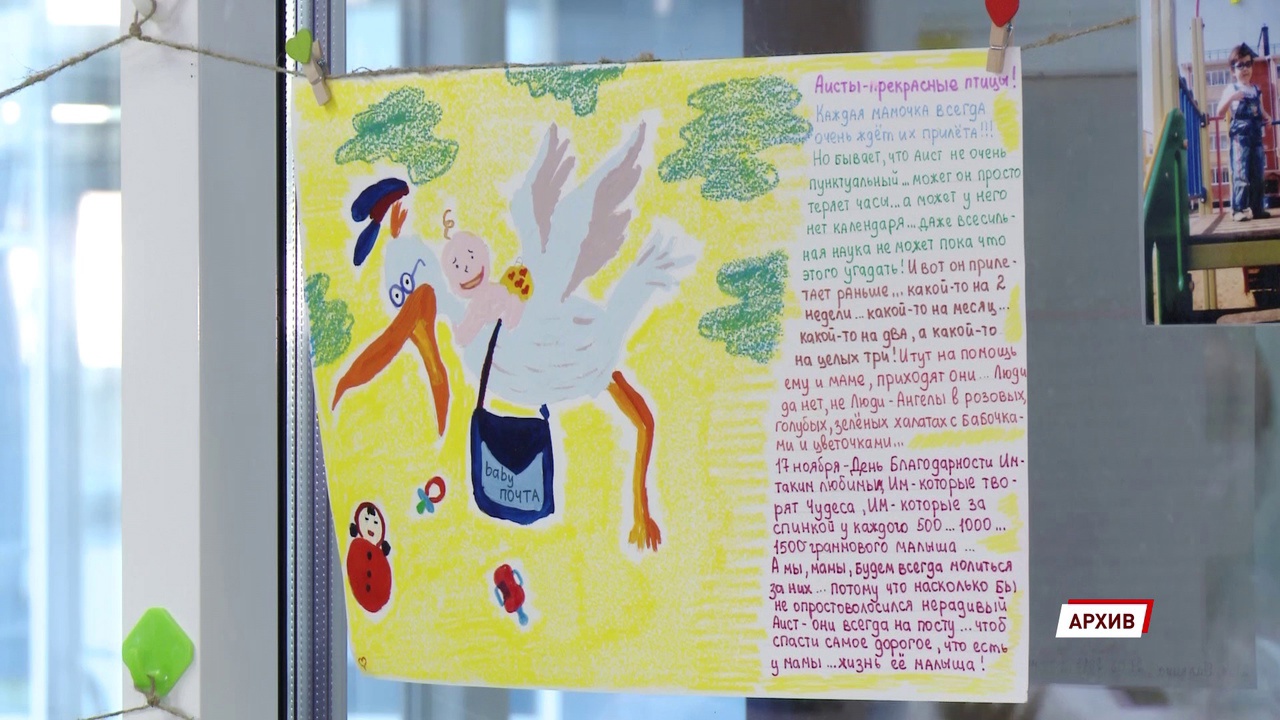 Аисты-прекрасные птицы!
Каждая мамочка всегда
очень ждёт их прилёта!!!
Но бывает, что Аист не очень
пунктуальный... может он просто
терлет часы... а может у него
нет календаря... даже всесиль-
ная наука не может пока что
этого угадать! И вот он приле-
тает раньше... какой-то на 2
недели... какой-то на месяц...
какой-то на два, а какой-то
на целых три! И тут на помощь
ему и маме, приходят они... Люди
да нет, не Люди - Ангелы в розовых,
голубых, зелёных халатах с бабочка-
ми и цветочками...
17 ноября - День Благодарности Им-
таким любимым, Им- которые тво-
рят Чудеса, ИМ- которые за
спинкой у каждого 500... 1000...
1500 граннового малыша ...
А мы, мамы, будем всегда молиться
за них... потому что насколько бы
не опростоволосился нерадивый
Аист - они всегда на посту... чтоб
спасти самое дорогое, что есть
у мамы ...жизнь её малыша!
baby
почта
АРХИВ